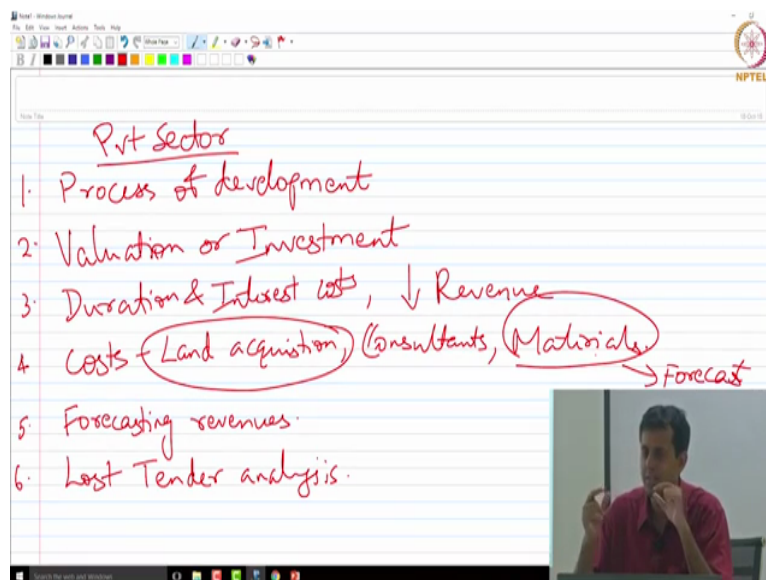 Note1 - Windows Journal
File Edit View Insert Actions Tools Help
Whole Page
B I
NPTEL
Note Title
Pvt Sector
1. Process of development
2. Valuation or Investment
3. Duration & Interest costs, ↓ Revenue
4. Costs - Land acquistion, Consultants, Materials.
→ Forecast
5. Forecasting revenues.
6. Lost Tender analysis.
Search the web and Windows